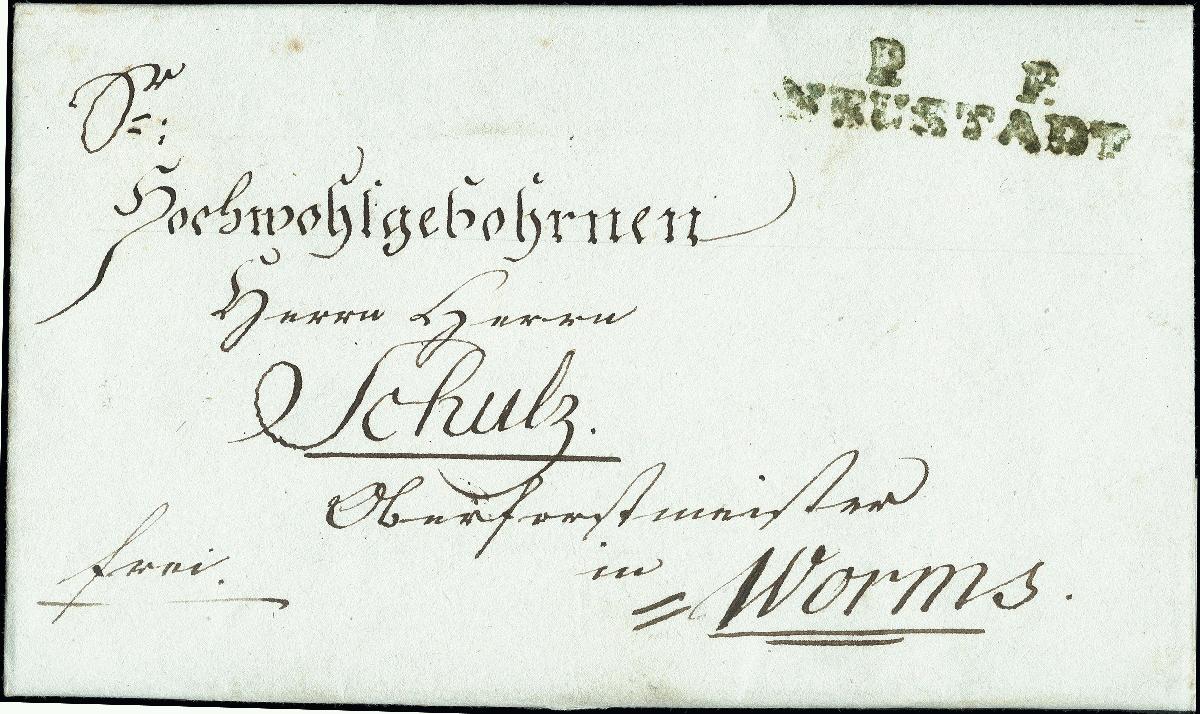 P. P.
NEUSTADT
Sr:
Hochwohlgebohrnen
Herrn Herrn
Schulz.
Oberforstmeister
frei. in
Worms.